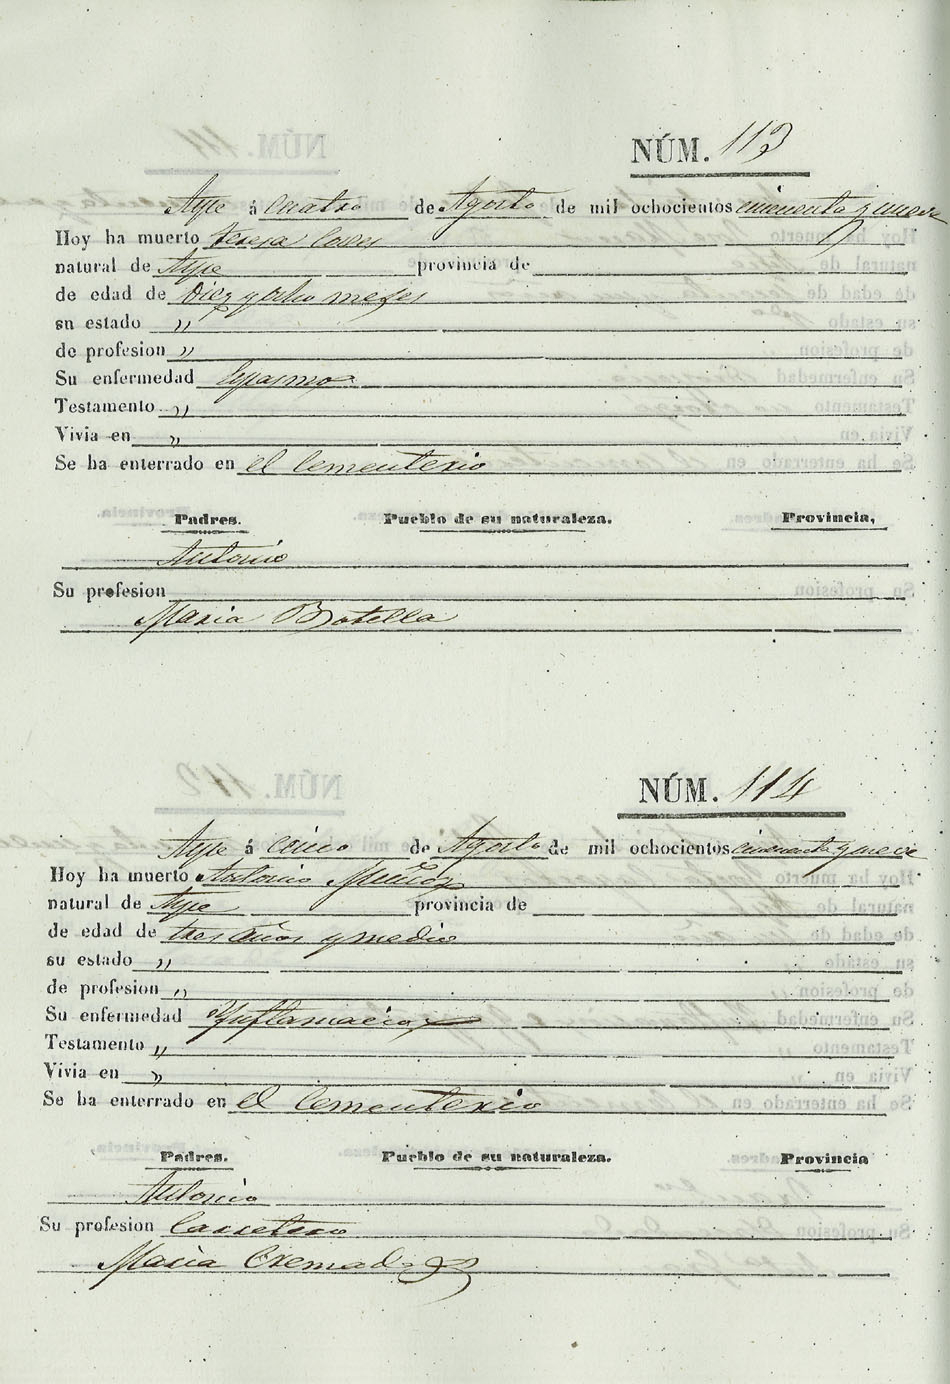 NÚM. 113
Aspe á cuatro de Agosto de mil ochocientos cincuenta y nueve
Hoy ha muerto Teresa Cores
natural de Aspe provincia de
de edad de Diez y ocho meses
su estado "
de profesion "
Su enfermedad Espasmo
Testamento "
Vivia en "
Se ha enterrado en el Cementerio
Padres. Pueblo de su naturaleza. Provincia,
Antonio
Su profesion
Maria Botella
NÚM. 114
Aspe á cinco de Agosto de mil ochocientos cincuenta y nueve
Hoy ha muerto Antonio Muñoz
natural de Aspe provincia de
de edad de tres años y medio
su estado "
de profesion "
Su enfermedad Ynflamacion
Testamento "
Vivia en "
Se ha enterrado en el Cementerio
Padres. Pueblo de su naturaleza. Provincia
Antonio
Su profesion Carretero
Maria Cremades